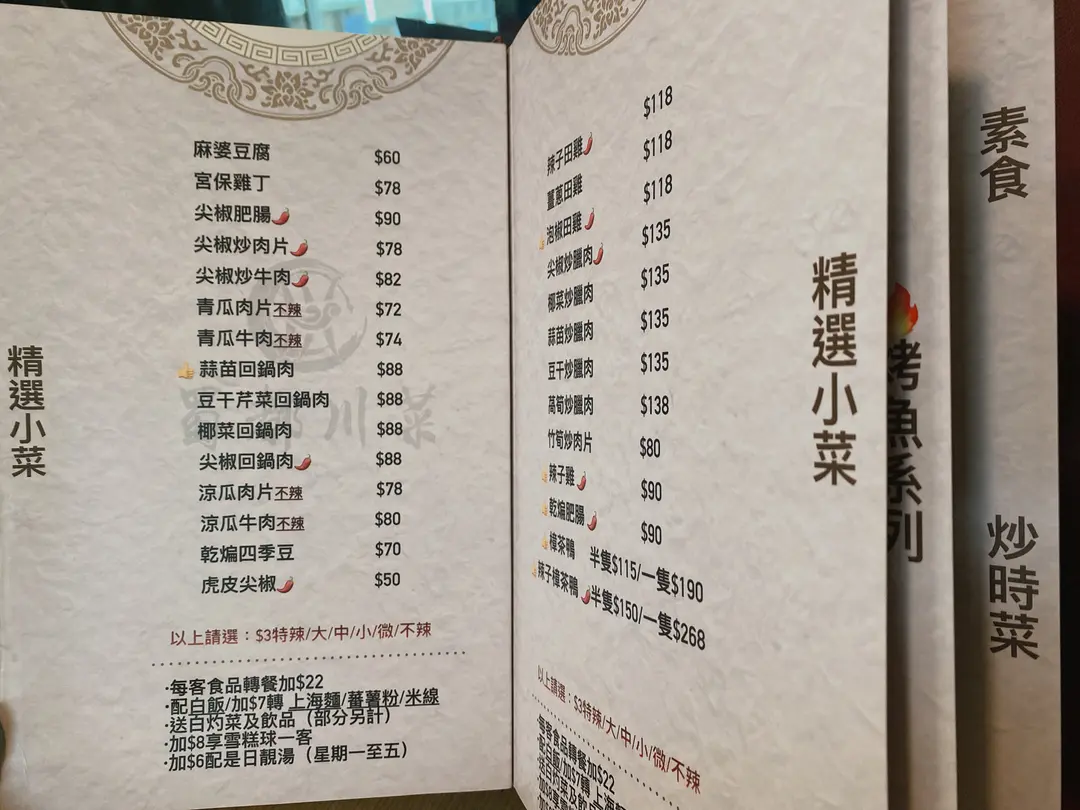 麻婆豆腐 $60
宮保雞丁 $78
尖椒肥腸 $90
尖椒炒肉片 $78
尖椒炒牛肉 $82
青瓜肉片不辣 $72
青瓜牛肉不辣 $74
蒜苗回鍋肉 $88
豆干芹菜回鍋肉 $88
椰菜回鍋肉 $88
尖椒回鍋肉 $88
涼瓜肉片不辣 $78
涼瓜牛肉不辣 $80
乾煸四季豆 $70
虎皮尖椒 $50
以上請選：$3特辣/大/中/小/微/不辣
·每客食品轉餐加$22
·配白飯/加$7轉 上海麵/蕃薯粉/米線
·送白灼菜及飲品（部分另計）
·加$8享雪糕球一客
·加$6配是日靚湯（星期一至五）
精選小菜
川菜
辣子田雞 $118
薑蔥田雞 $118
泡椒田雞 $118
尖椒炒臘肉 $135
椰菜炒臘肉 $135
蒜苗炒臘肉 $135
豆干炒臘肉 $135
萵筍炒臘肉 $138
竹筍炒肉片 $80
辣子雞 $90
乾煸肥腸 $90
樟茶鴨 半隻$115/一隻$190
辣子樟茶鴨 半隻$150/一隻$268
以上請選：$3特辣/大/中/小/微/不辣
·每客食品轉餐加$22
精選小菜
烤魚系列
素食
炒時菜